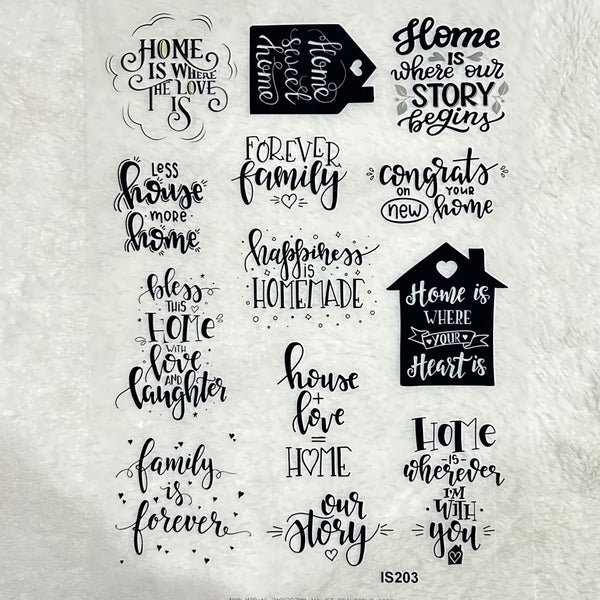 HONE
IS WHERE
THE LOVE
IS
Home
sweet
home
Home
IS
where our
STORY
begins
LESS
house
MORE
home
FOREVER
family
congrats
ON YOUR
new home
happiness
IS
HOMEMADE
bless
THIS
HOME
WITH
love
AND
laughter
Home is
WHERE
YOUR
Heart is
house
+
love
=
HOME
family
is
forever
our
story
HOME
-IS-
wherever
I'M
·WITH·
you
IS203